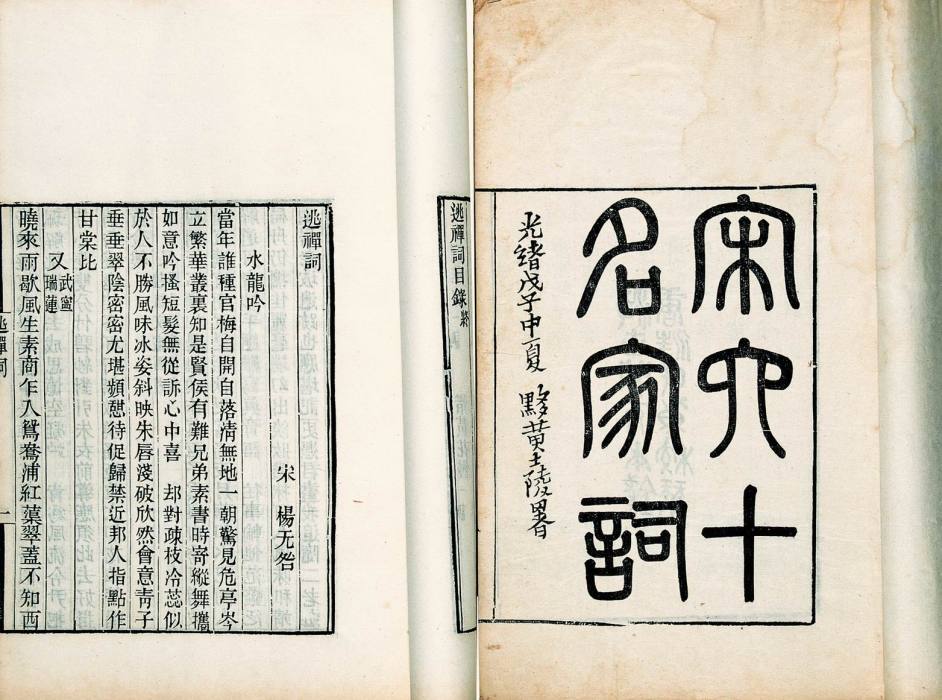 宋六十
名家詞
光緒戊子中夏 黟黃士陵署
逃禪詞目錄終
逃禪詞
宋 楊无咎
水龍吟
當年誰種官梅自開自落清無地一朝驚見危亭岑
立繁華叢裏知是賢侯有難兄弟素書時寄縱舞攜
如意吟搔短髮無從訴心中喜 却對疎枝冷蕊似
於人不勝風味冰姿斜映朱唇淺破欣然會意青子
垂垂翠陰密密尤堪頻憩待促歸禁近邦人指點作
甘棠比
又 武寧瑞蓮
曉來雨歇風生素商乍入鴛鴦浦紅蕖翠蓋不知西
逃禪詞
一